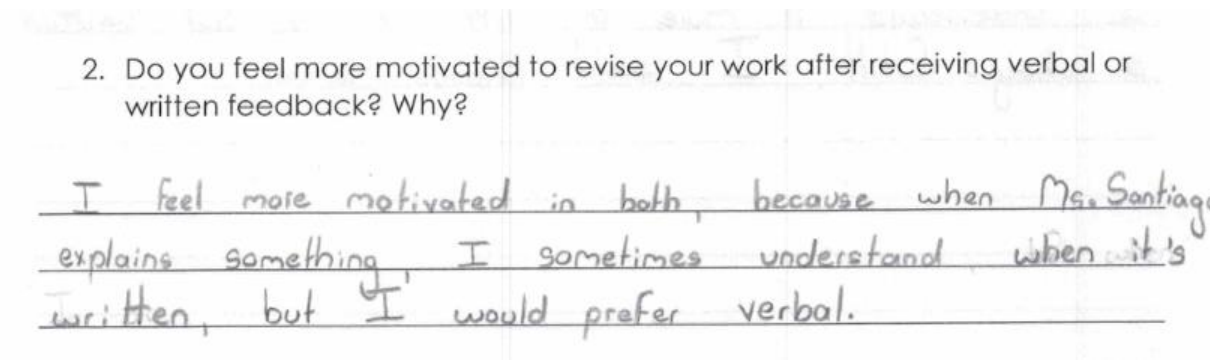 2. Do you feel more motivated to revise your work after receiving verbal or
written feedback? Why?
I feel more motivated in both, because when Ms. Santiago
explains something, I sometimes understand, when it's
written, but I would prefer verbal.